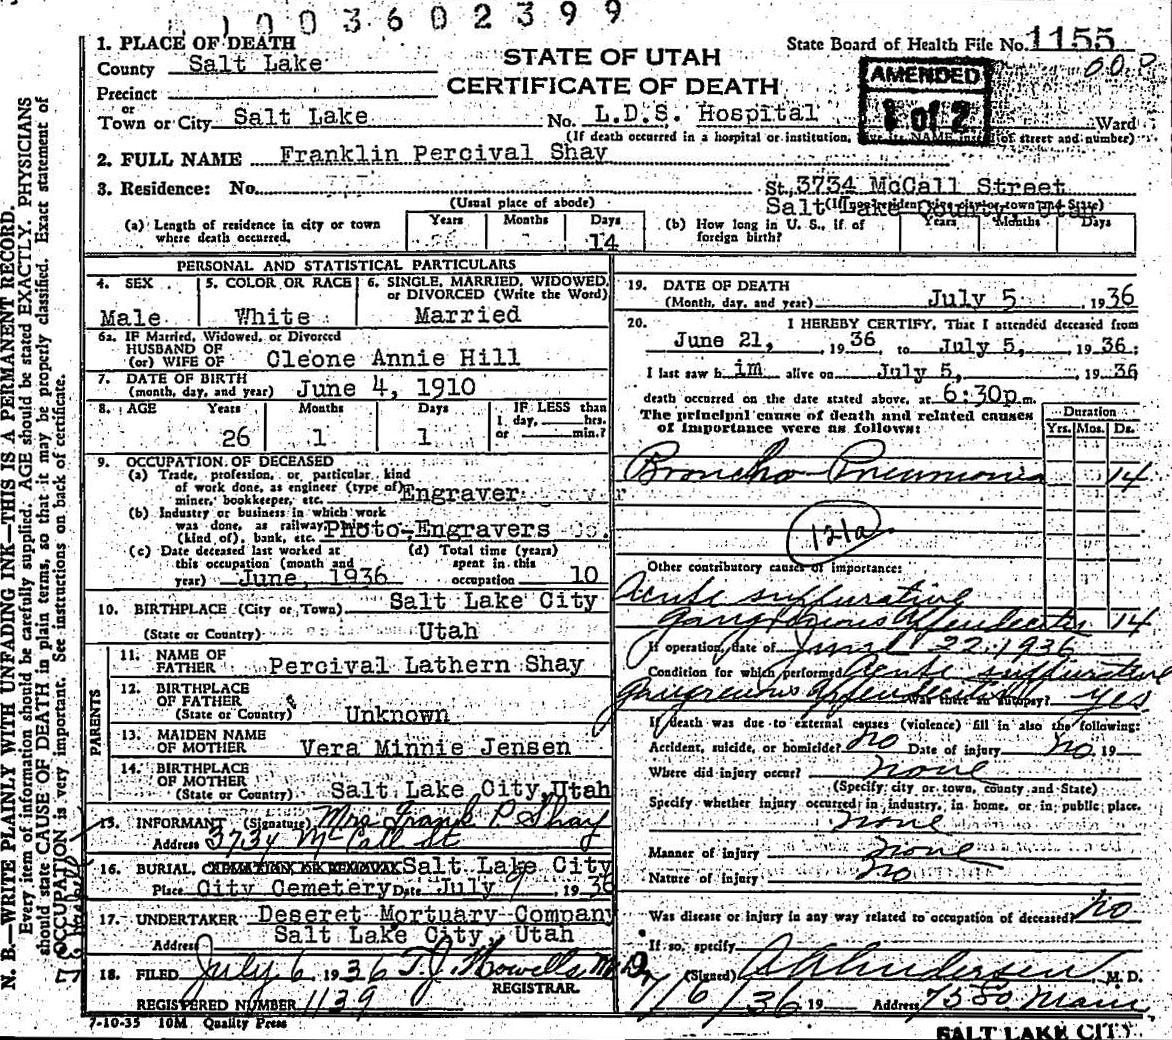 1003602399
1. PLACE OF DEATH
County Salt Lake
Precinct
or
Town or City Salt Lake
STATE OF UTAH
CERTIFICATE OF DEATH
State Board of Health File No. 1155
000
AMENDED
1 of 2
No. L.D.S. Hospital Ward
(If death occurred in a hospital or institution, its NAME of street and number)
2. FULL NAME Franklin Percival Shay
3. Residence: No. St. 3734 McCall Street
(Usual place of abode) Salt Lake County, Utah
(a) Length of residence in city or town where death occurred. Years Months Days 14
(b) How long in U. S., if of foreign birth? Years Months Days
PERSONAL AND STATISTICAL PARTICULARS
4. SEX Male
5. COLOR OR RACE White
6. SINGLE, MARRIED, WIDOWED, or DIVORCED (Write the Word) Married
6a. IF Married, Widowed, or Divorced
HUSBAND OF
(or) WIFE OF Cleone Annie Hill
7. DATE OF BIRTH
(month, day, and year) June 4, 1910
8. AGE Years Months Days IF LESS than
1 day, hrs.
or min.?
26 1 1
9. OCCUPATION OF DECEASED
(a) Trade, profession, or particular kind
of work done, as engineer (type of)
miner, bookkeeper, etc. Engraver
(b) Industry or business in which work
was done, as railway,
(kind of), bank, etc. Photo-Engravers Co.
(c) Date deceased last worked at
this occupation (month and
year) June, 1936
(d) Total time (years)
spent in this
occupation 10
10. BIRTHPLACE (City or Town) Salt Lake City
(State or Country) Utah
PARENTS
11. NAME OF
FATHER Percival Lathern Shay
12. BIRTHPLACE
OF FATHER
(State or Country) Unknown
13. MAIDEN NAME
OF MOTHER Vera Minnie Jensen
14. BIRTHPLACE
OF MOTHER
(State or Country) Salt Lake City, Utah
15. INFORMANT (Signature) Mrs Frank P. Shay
Address 3734 McCall St
16. BURIAL, CREMATION OR REMOVAL Salt Lake City
Place City Cemetery Date July 7, 1936
17. UNDERTAKER Deseret Mortuary Company
Address Salt Lake City, Utah
18. FILED July 6, 1936 T. J. Howells M.D.
REGISTRAR.
REGISTERED NUMBER 1139
7-10-35 10M Quality Press
19. DATE OF DEATH
(Month, day, and year) July 5, 1936
20. I HEREBY CERTIFY, That I attended deceased from
June 21, 1936, to July 5, 1936:
I last saw him alive on July 5, 1936
death occurred on the date stated above, at 6:30p.m.
The principal cause of death and related causes
of importance were as follows:
Duration
Yrs. Mos. Ds.
Broncho Pneumonia 14
121a
Other contributory causes of importance:
Acute suppurative
Gangrenous Appendicitis 14
If operation, date of June 22, 1936
Condition for which performed Acute suppurative
Gangrenous Appendicitis Was there an autopsy? yes
If death was due to external causes (violence) fill in also the following:
Accident, suicide, or homicide? no Date of injury no 19
Where did injury occur? none
(Specify city or town, county and State)
Specify whether injury occurred in industry, in home, or in public place.
none
Manner of injury none
Nature of injury no
Was disease or injury in any way related to occupation of deceased? no
If so, specify
(Signed) Andersen M. D.
7/6/36 19 Address 75 So. Main
SALT LAKE CITY.
N. B.—WRITE PLAINLY WITH UNFADING INK—THIS IS A PERMANENT RECORD.
Every item of information should be carefully supplied. AGE should be stated EXACTLY. PHYSICIANS
should state CAUSE OF DEATH in plain terms, so that it may be properly classified. Exact statement of
OCCUPATION is very important. See instructions on back of certificate.